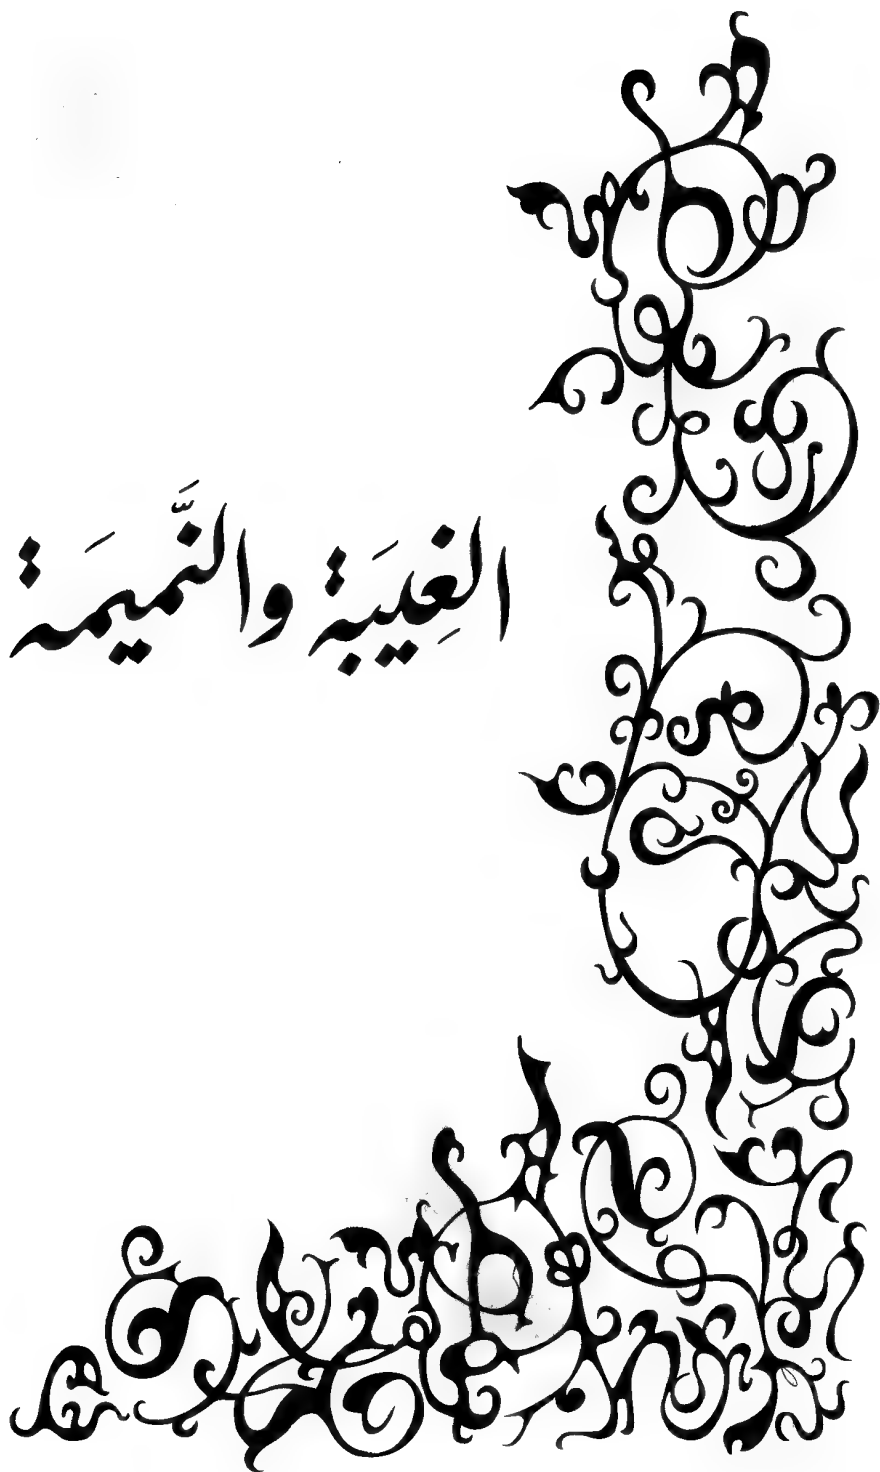 الغِيبَة والنَّميمَة